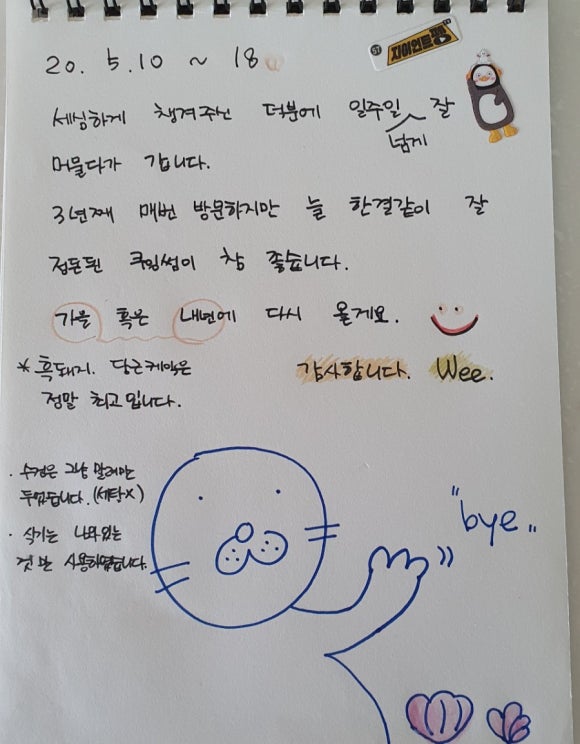 20. 5.10 ~ 18
자이언트펭
세심하게 챙겨주신 덕분에 일주일 넘게 잘
머물다가 갑니다.
3년째 매번 방문하지만 늘 한결같이 잘
정돈된 쿠임썸이 참 좋습니다.
가을 혹은 내년에 다시 올게요.
* 흑돼지. 당근케익은
정말 최고입니다.
감사합니다. Wee.
· 수건은 그냥 말려만
두었습니다. (세탁X)
· 식기는 나와있는
것만 사용하였습니다.
"bye"